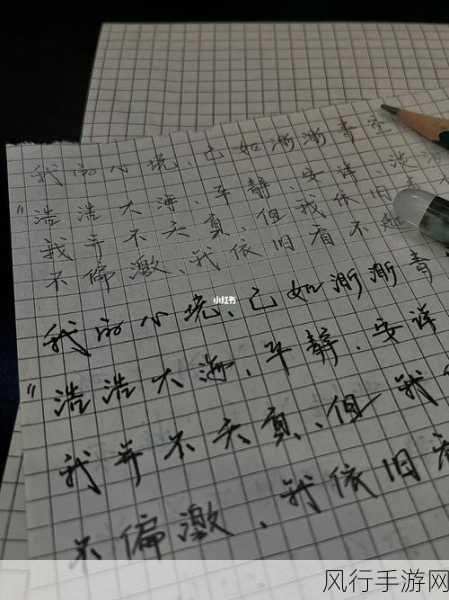 我的心境、已如渐渐青空
"浩浩大海、平静、安详、
我并不天真、但我依旧
不偏激、我依旧看不起
小红书
我的心境、已如渐渐青
"浩浩大海、平静、安详
我并不天真、但我
不偏激、我依旧看
风行手游网